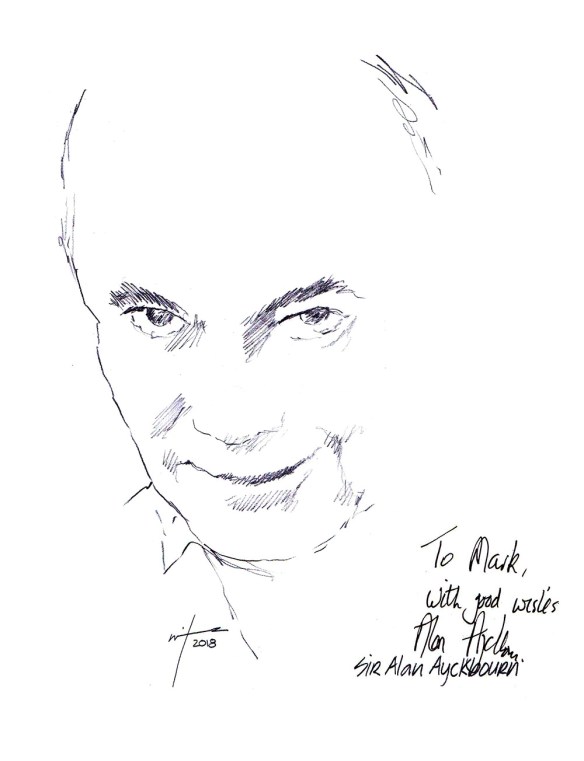 To Mark,
with good wishes
Alan Ayckbourn
Sir Alan Ayckbourn
2018